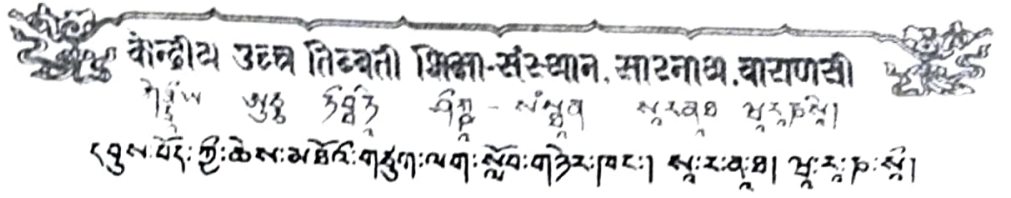 केन्द्रीय उच्च तिब्बती शिक्षा-संस्थान, सारनाथ, वाराणसी
སཱརནཱཐ ཝཱརཱཎསཱི།
དབུས་བོད་ཀྱི་ཆེས་མཐོའི་གཙུག་ལག་སློབ་གཉེར་ཁང་། སཱ་ར་ནཱ་ཐ། ཝཱ་རཱ་ཎ་སཱི།